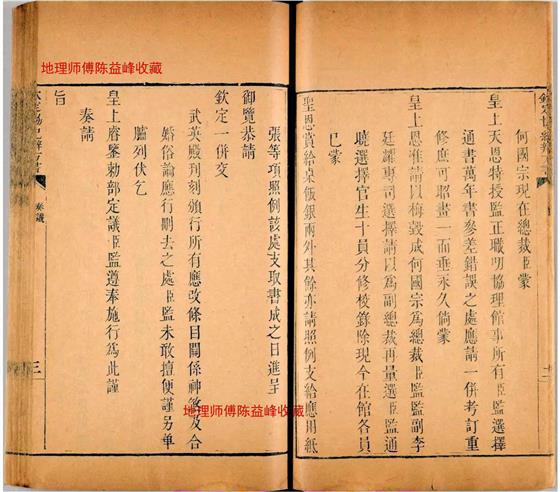 欽定協紀辨方書
何國宗現在總裁臣蒙
皇上天恩特授監正職司協理館事所有臣監選擇
通書萬年書參差錯誤之處應請一併考訂重
修庶可昭畫一而垂永久倘蒙
皇上恩准請以梅瑴成何國宗為總裁臣監監副李
廷耀專司選擇請以為副總裁再量選臣監通
曉選擇官生十員分修校錄除現今在館各員
已蒙
聖恩賞給桌飯銀兩外其餘亦請照例支給應用紙
二
張等項照例該處支取書成之日進呈
御覽恭請
欽定一併交
武英殿刊刻頒行所有應改條目關係神煞及合
婚俗論應行刪去之處臣監未敢擅便謹另單
臚列伏乞
皇上睿鑒勅部定議臣監遵奉施行為此謹
奏請
旨
奏議
三
地理师傅陈益峰收藏
地理师傅陈益峰收藏